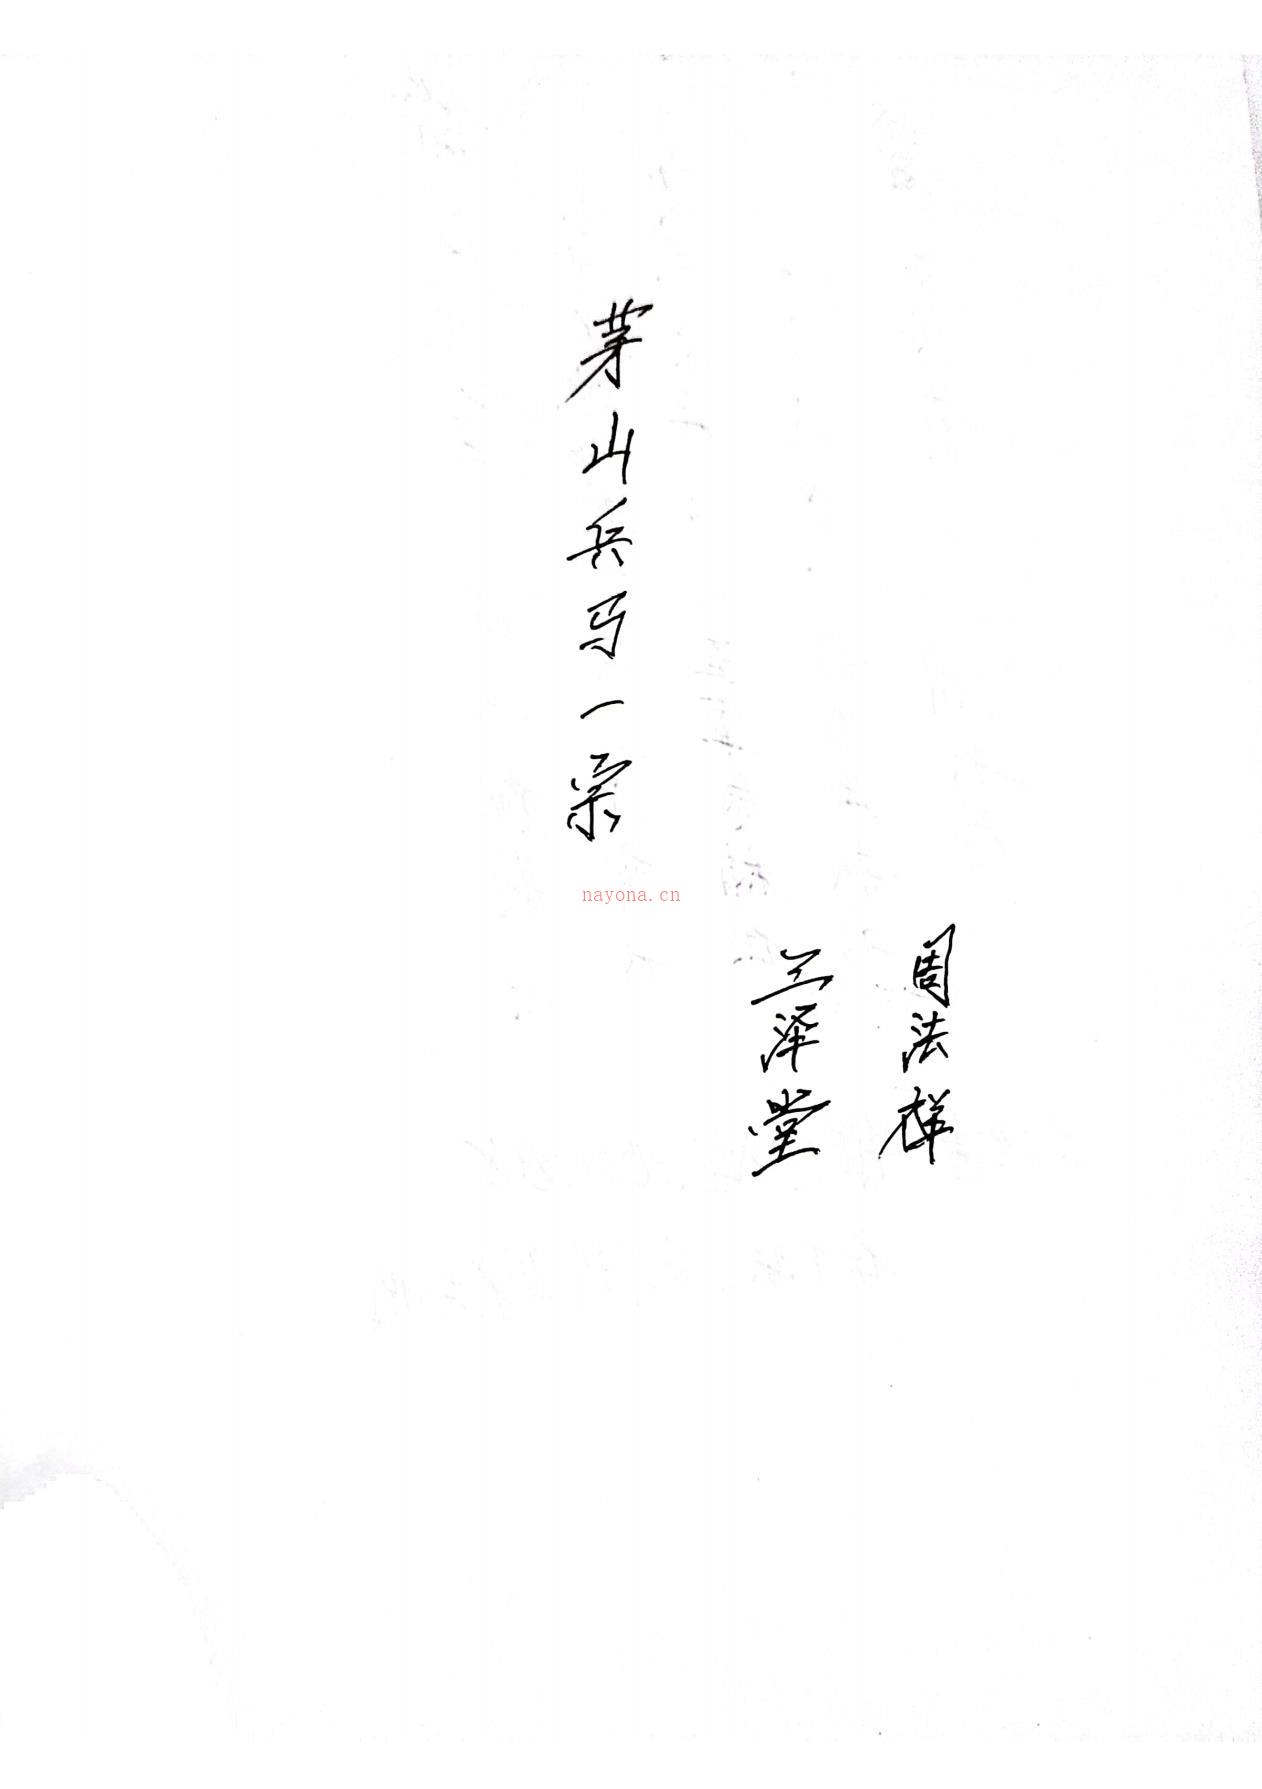 茅山兵马一宗
周法祥
三泽堂
nayona.cn